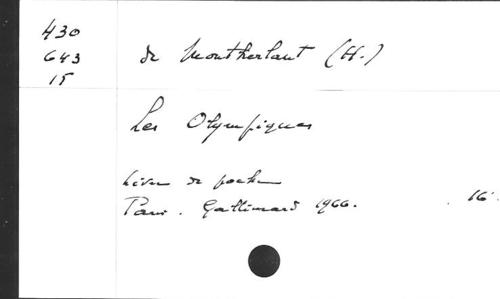 430
643
15
de Montherlant (H.)
Les Olympiques
Livre de poche
Paris. Gallimard 1966. 16